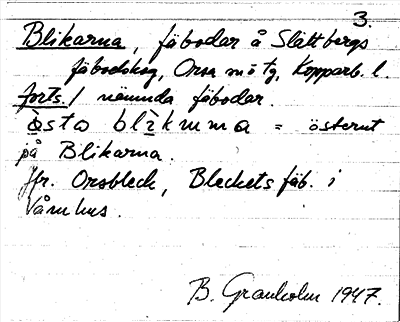 3.
Blikarna, fäbodar å Slättbergs
fäbodskog, Orsa sn o tg, Kopparb. l.
forts. / nämnda fäbodar.
östo blikmma = österut
på Blikarna.
Jfr. Orsbleck, Bleckets fäb. i
Våmhus.
B. Granholm 1947.